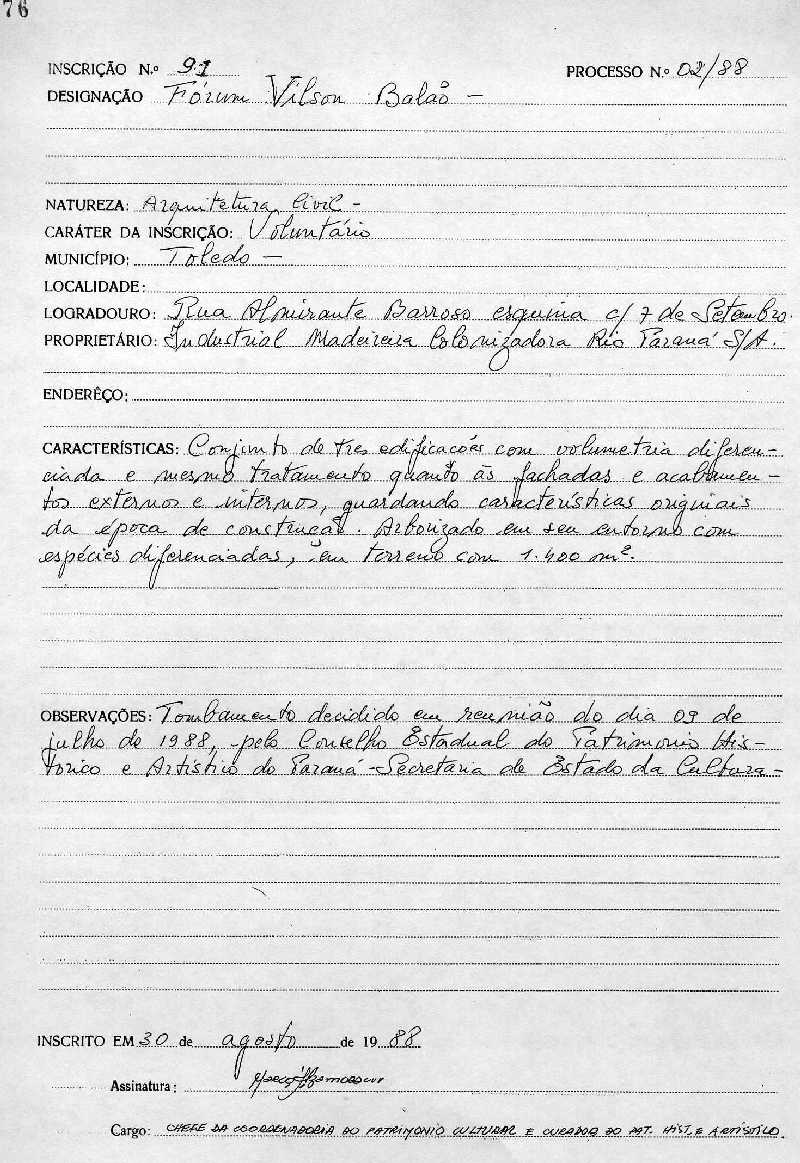 76
INSCRIÇÃO N.º 91 PROCESSO N.º 02/88
DESIGNAÇÃO Fórum Vilson Balão -
NATUREZA: Arquitetura Civil -
CARÁTER DA INSCRIÇÃO: Voluntário
MUNICÍPIO: Toledo -
LOCALIDADE:
LOGRADOURO: Rua Almirante Barroso esquina c/ 7 de Setembro.
PROPRIETÁRIO: Industrial Madeireira Colonizadora Rio Paraná S/A.
ENDERÊÇO:
CARACTERÍSTICAS: Conjunto de tres edificacões com volumetria diferen-
ciada e mesmo tratamento quanto às fachadas e acabamen-
tos externos e internos, guardando características originais
da época de construção. Arborizado em seu entorno com
espécies diferenciadas, em terreno com 1.400 m².
OBSERVAÇÕES: Tombamento decidido em reunião do dia 09 de
julho de 1988, pelo Conselho Estadual do Patrimonio His-
torico e Artístico do Paraná - Secretaria de Estado da Cultura -
INSCRITO EM 30 de agosto de 19 88
Assinatura:
Cargo: CHEFE DA COORDENADORIA DO PATRIMONIO CULTURAL E CURADOR DO PAT. HIST. E ARTÍSTICO.